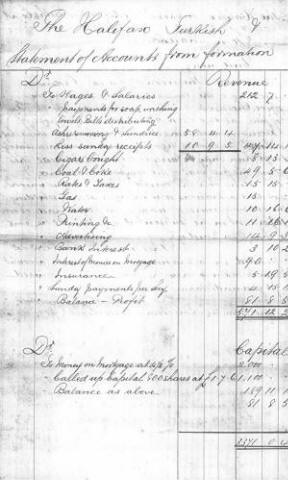 The Halifax Turkish &
Statement of Accounts from formation
Dr Revenue
To Wages & Salaries 212 7
payments for soap, washing
towels, bills distributing
& sundries 58 4 4
Less sunday receipts 10 9 5
" Cigars bought 5 13
" Coal & Coke 49 5
" Rates & Taxes 15 15
" Gas 15
" Water 10 16
" Printing &c 11
" Advertising
" Bank Interest 3 10
" Interest of money on Mortgage 90
" Insurance 5 19
" Sunday payments per day
" Balance - Profit 81 8 5
Dr Capital
To Money on Mortgage at
" Called up Capital 800 shares at £1 7 6 1,100
Balance as above
81 8 5